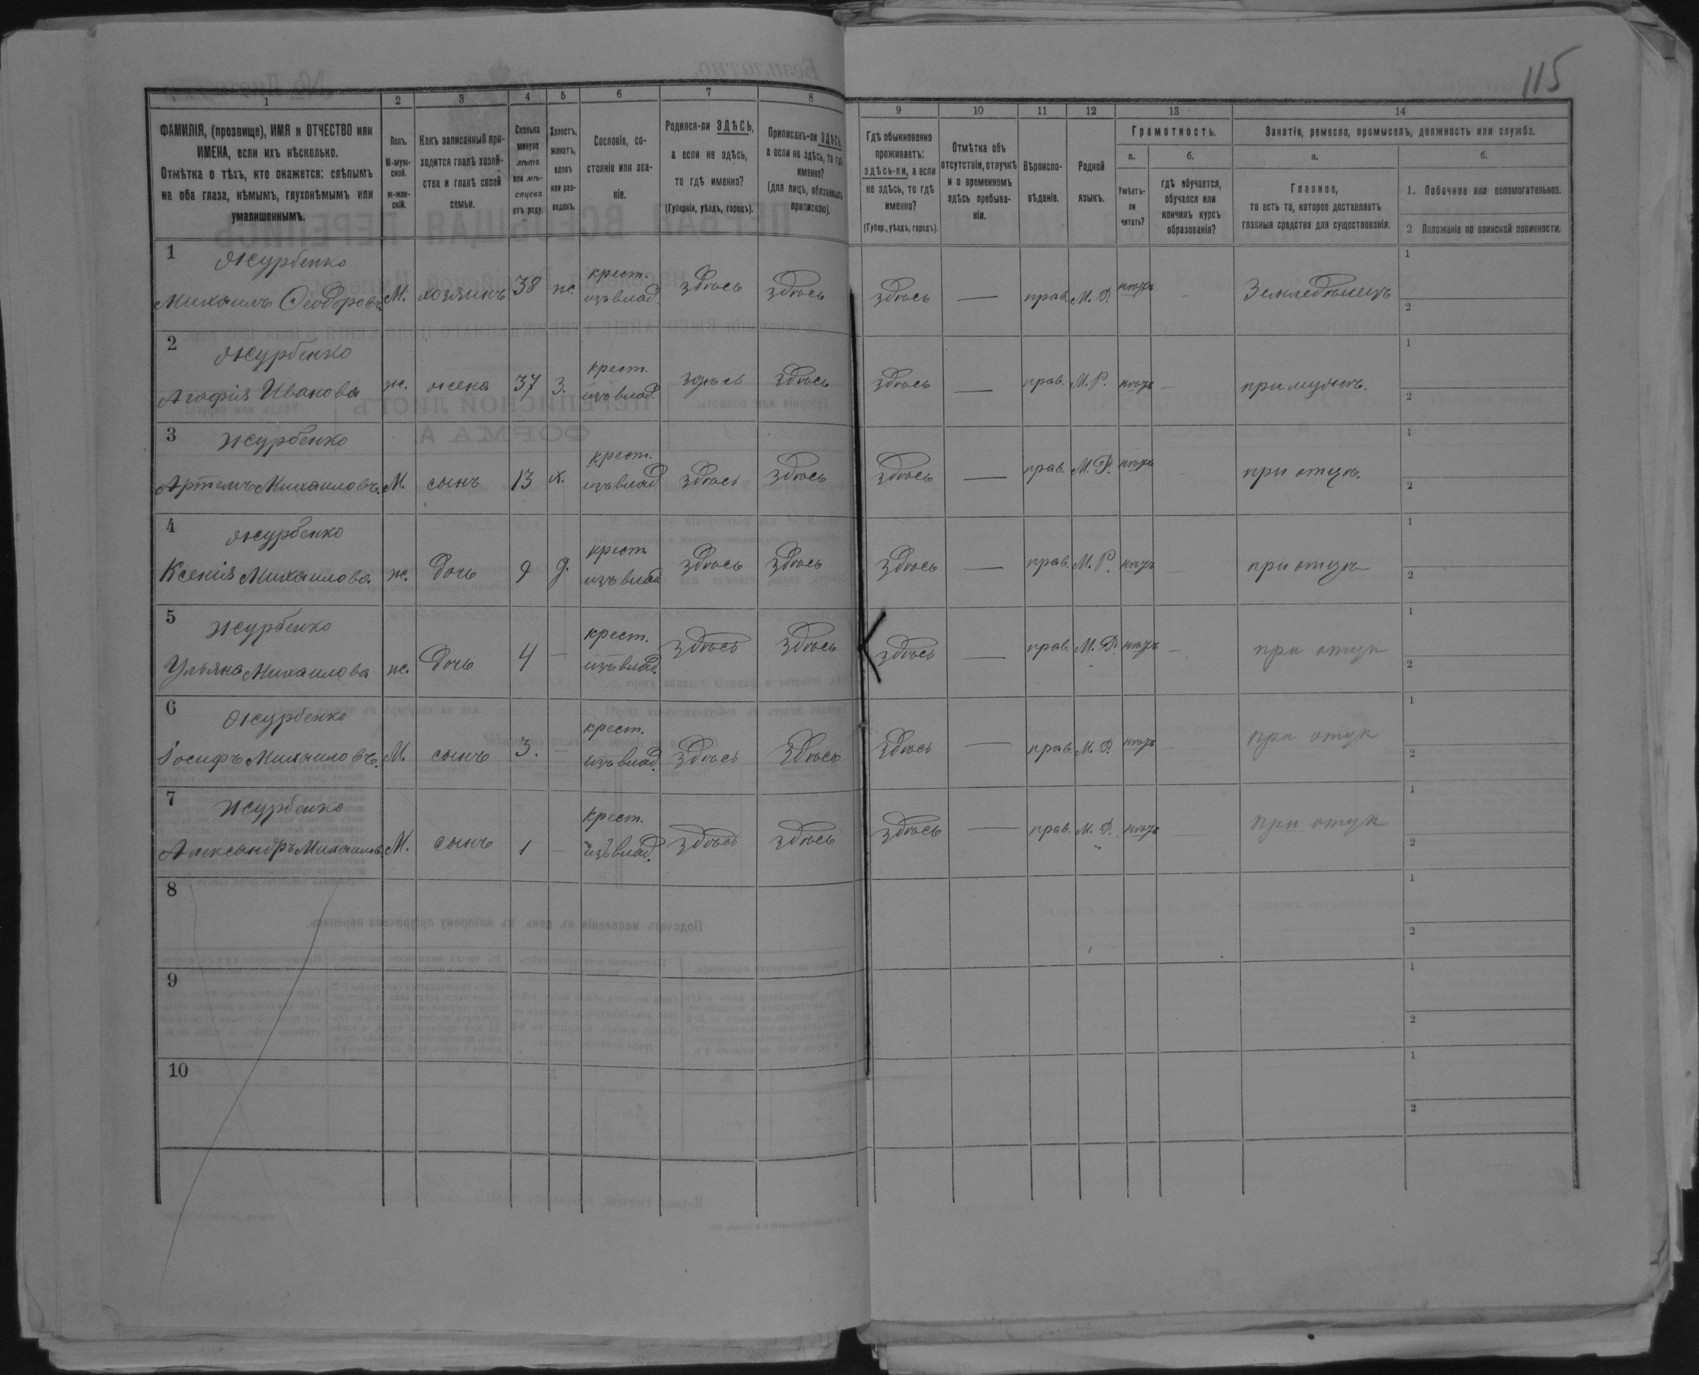 115
1 2 3 4 5 6 7 8 9 10 11 12 13 14
ФАМИЛІЯ, (прозвище), ИМЯ и ОТЧЕСТВО или
ИМЕНА, если ихъ нѣсколько.
Отмѣтка о тѣхъ, кто окажется: слѣпымъ
на оба глаза, нѣмымъ, глухонѣмымъ или
умалишеннымъ.
Полъ.
М-муж-
ской.
ж-жен-
скій.
Какъ записанный при-
ходится главѣ хозяй-
ства и главѣ своей
семьи.
Сколько
минуло
лѣтъ
или мѣ-
сяцевъ
отъ роду.
Холостъ,
женатъ,
вдовъ
или раз-
веденъ.
Сословіе, со-
стояніе или зва-
ніе.
Родился-ли ЗДѢСЬ,
а если не здѣсь,
то гдѣ именно?
(Губернія, уѣздъ, городъ).
Приписанъ-ли ЗДѢСЬ,
а если не здѣсь, то гдѣ
именно?
(для лицъ, обязанныхъ
припискою).
Гдѣ обыкновенно
проживаетъ:
здѣсь-ли, а если
не здѣсь, то гдѣ
именно?
(Губер., уѣздъ, городъ).
Отмѣтка объ
отсутствіи, отлучкѣ
и о временномъ
здѣсь пребыва-
ніи.
Вѣроиспо-
вѣданіе.
Родной
языкъ.
Грамотность.
а.
Умѣетъ-
ли
читать?
б.
гдѣ обучается,
обучался или
кончилъ курсъ
образованія?
Занятіе, ремесло, промыселъ, должность или служба.
а.
Главное,
то есть то, которое доставляетъ
главныя средства для существованія.
б.
1. Побочное или вспомогательное.
2 Положеніе по воинской повинности.
1 Журбенко
Михаилъ Ѳеодоровъ М. хозяинъ 38 ж. крест. изъ влад. здѣсь здѣсь здѣсь — прав. М. Р. нѣтъ - Земледѣлецъ 1 2
2 Журбенко
Агафія Иванова ж. жена 37 з. крест. изъ влад. здѣсь здѣсь здѣсь — прав. М. Р. нѣтъ при мужѣ. 1 2
3 Журбенко
Артемъ Михаиловъ. М. сынъ 13 х. крест. изъ влад здѣсь здѣсь здѣсь — прав. М. Р. нѣтъ - при отцѣ. 1 2
4 Журбенко
Ксенія Михаилова ж. дочь 9 д. крест изъ влад здѣсь здѣсь здѣсь — прав. М. Р. нѣтъ при отцѣ 1 2
5 Журбенко
Ульяна Михаилова ж. дочь 4 — крест. изъ влад. здѣсь здѣсь здѣсь — прав. М. Р. нѣтъ - при отцѣ 1 2
6 Журбенко
Іосифъ Михаиловъ. М. сынъ 3. — крест. изъ влад. здѣсь здѣсь здѣсь — прав М. Р. нѣтъ при отцѣ 1 2
7 Журбенко
Александръ Михаиловъ М. сынъ 1 — крест. изъ влад. здѣсь здѣсь здѣсь — прав. М. Р. нѣтъ при отцѣ 1 2
8 1 2
9 1 2
10 1 2